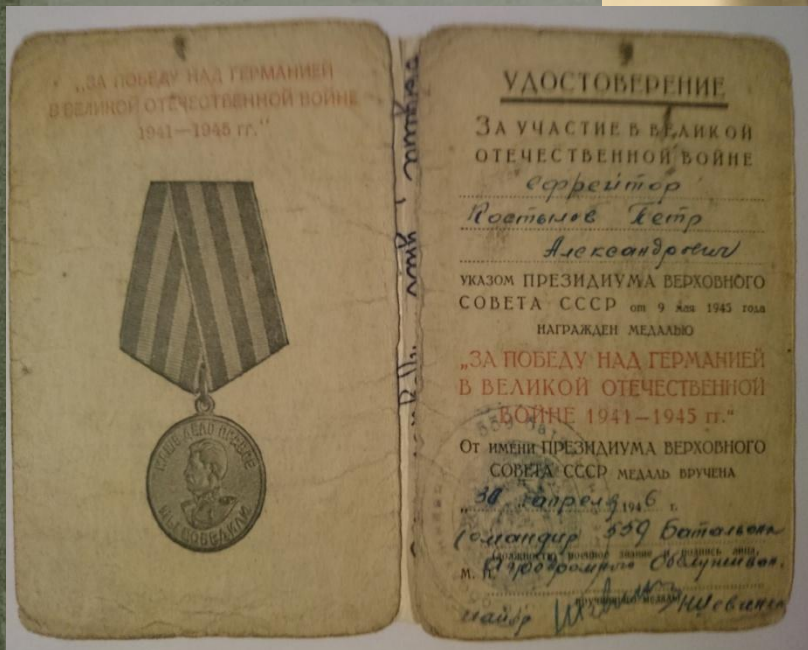 „ЗА ПОБЕДУ НАД ГЕРМАНИЕЙ
В ВЕЛИКОЙ ОТЕЧЕСТВЕННОЙ ВОЙНЕ
1941—1945 гг.“
НАШЕ ДЕЛО ПРАВОЕ
МЫ ПОБЕДИЛИ
УДОСТОВЕРЕНИЕ
ЗА УЧАСТИЕ В ВЕЛИКОЙ
ОТЕЧЕСТВЕННОЙ ВОЙНЕ
ефрейтор
Костылов Петр
Александрович
УКАЗОМ ПРЕЗИДИУМА ВЕРХОВНОГО
СОВЕТА СССР от 9 мая 1945 года
НАГРАЖДЕН МЕДАЛЬЮ
„ЗА ПОБЕДУ НАД ГЕРМАНИЕЙ
В ВЕЛИКОЙ ОТЕЧЕСТВЕННОЙ
ВОЙНЕ 1941—1945 гг.“
ОТ ИМЕНИ ПРЕЗИДИУМА ВЕРХОВНОГО
СОВЕТА СССР МЕДАЛЬ ВРУЧЕНА
„30 апреля 1946 г.
командир 559 Батальона
(должность, военное звание и подпись лица,
М. П. Аэродромного Обслуживан.
вручившего медаль)
майор